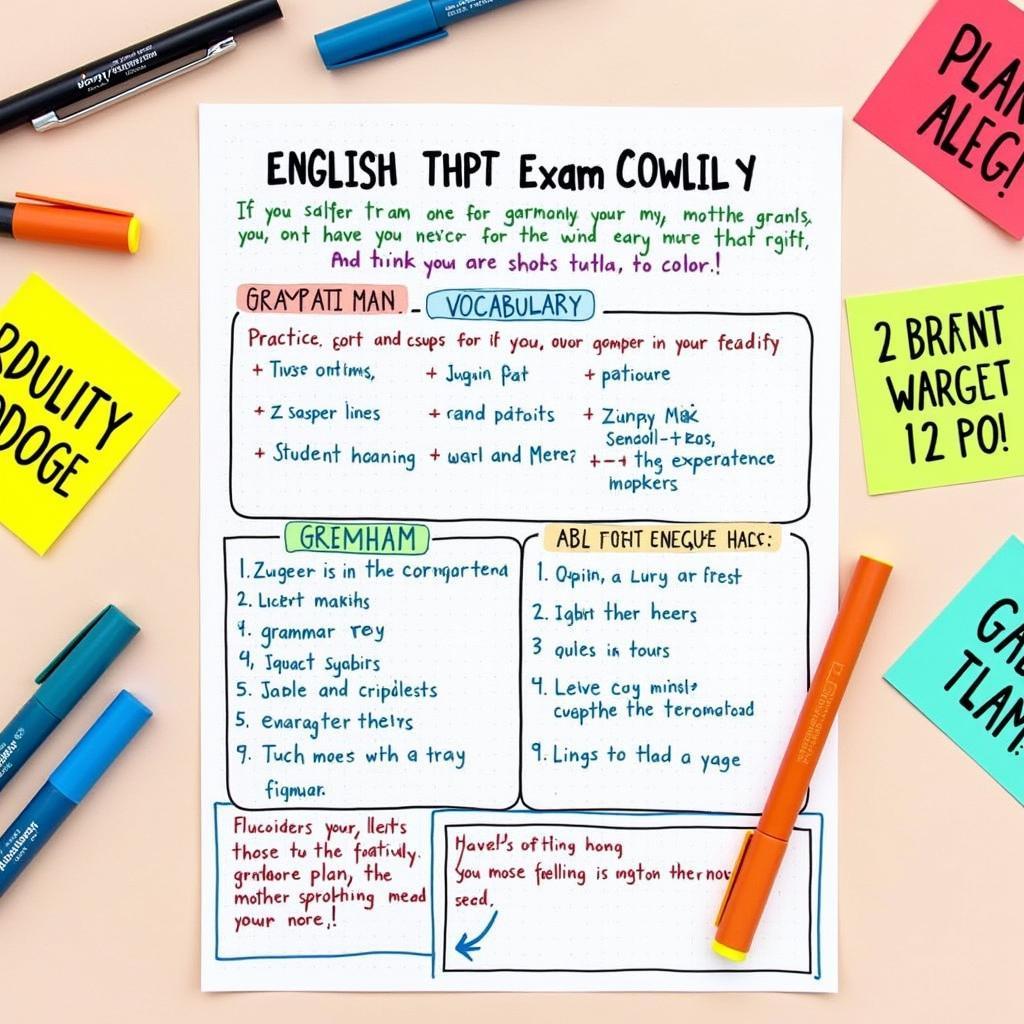 ENGLISH THPT Exam COWLILY
If you salfer tram one for garmonly your my, motthe granls,
you, ont have you never for the wind eary mure that rgift,
And think you are shots tutla, to color.!
GRAMPATI MAN. VOCABULARY
Practice, gort and csups for if you, ovor gomper in your feadify
+ Tivse ontims, + Jugain fat + patioure
+ Z sasper lines + rand patoits + Zunpy Mak
Sendoll-tzos,
+ Student hoaning + warl and Mere? +-+ thg experatence
mopkers
GREMHAM
1. Zugeer is in the corngortena
2. Licert makihs
4. grammar rey
4, Iquact syabirs
5. Jable and cripilests
5. enaragter thelrs
9. Tuch moes with a tray
figmuar.
ABL FOHT ENEGUE HACC:
1. Opiin, a Lury ar frest
2. Igbit ther heers
3 qules in tours
4. Leive coy minsl,
cuapthe the teromatoad
9. Lings to tlad a yage
Flucoiders your, llerts
those to the foativly.
grafaore plan, the
mother sprothing mead
your nore,!
Havel's of tling hong
you mose felling is ington ther nov
seed,
PLAN
ALEG!
2 BRANT
WARGET
12 PO!
RDULITY
DOGE
GAL
TLAM!